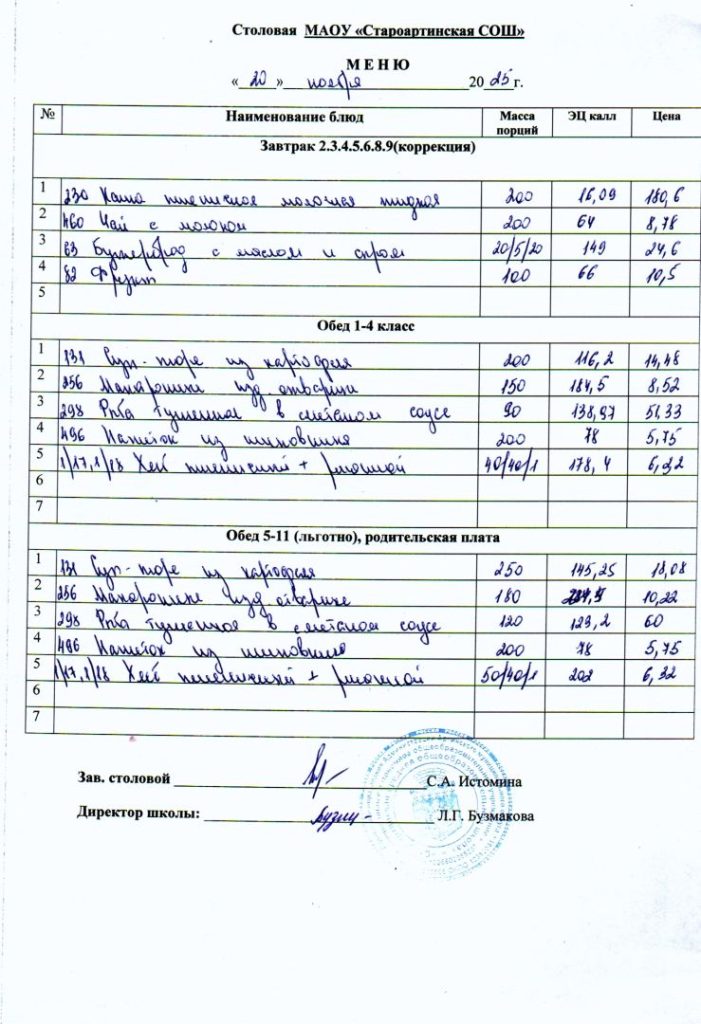 Столовая МАОУ «Староартинская СОШ»
М Е Н Ю
« 20 » ноября 2025 г.
№ Наименование блюд Масса порций ЭЦ калл Цена
Завтрак 2.3.4.5.6.8.9(коррекция)
1 230 Каша пшеничная молочная жидкая 200 16,09 180,6
2 460 Чай с молоком 200 64 8,78
3 63 Бутерброд с маслом и сыром 20/5/20 149 24,6
4 82 Фрукт 100 66 10,5
5
Обед 1-4 класс
1 131 Суп-пюре из картофеля 200 116,2 14,48
2 256 Макаронные изд. отварные 150 184,5 8,52
3 298 Рыба тушенная в сметаном соусе 90 138,97 51,33
4 496 Напиток из шиповника 200 78 5,75
5 1/17,1/18 Хлеб пшеничный + ржаной 40/40/1 178,4 6,32
6
7
Обед 5-11 (льготно), родительская плата
1 131 Суп-пюре из картофеля 250 145,25 18,08
2 256 Макаронные изд. отварные 180 10,22
3 298 Рыба тушенная в сметаном соусе 120 129,2 60
4 496 Напиток из шиповника 200 78 5,75
5 1/17,1/18 Хлеб пшеничный + ржаной 50/40/1 202 6,32
6
7
Зав. столовой С.А. Истомина
Директор школы: Л.Г. Бузмакова